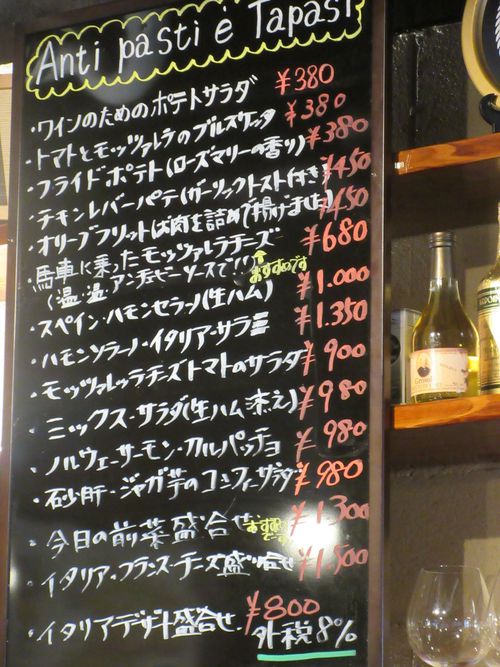 Anti pasti e Tapas!
・ワインのためのポテトサラダ ¥380
・トマトとモッツァレラのブルスケッタ ¥380
・フライドポテト(ローズマリーの香り) ¥380
・チキンレバーパテ(ガーリックトスト付き) ¥450
・オリーブフリット(お肉を詰めて揚げました) ¥450
・馬車に乗ったモッツァレラチーズ ¥680
(温・温・アンチョビーソースで!!) おすすめです
・スペイン・ハモンセラーノ(生ハム) ¥1.000
・ハモンソラーノ・イタリア・サラミ ¥1.350
・モッツァレッラチーズトマトのサラダ ¥900
・ミックス・サラダ(生ハム添え) ¥980
・ノルウェーサーモン・カルパッチョ ¥980
・砂肝・ジャガ芋のコンフィーサラダ ¥980
・今日の前菜盛合せ おすすめです ¥1.300
・イタリア・フランス・チーズ盛り合せ ¥1.500
・イタリアデザート盛合せ ¥800
外税8%